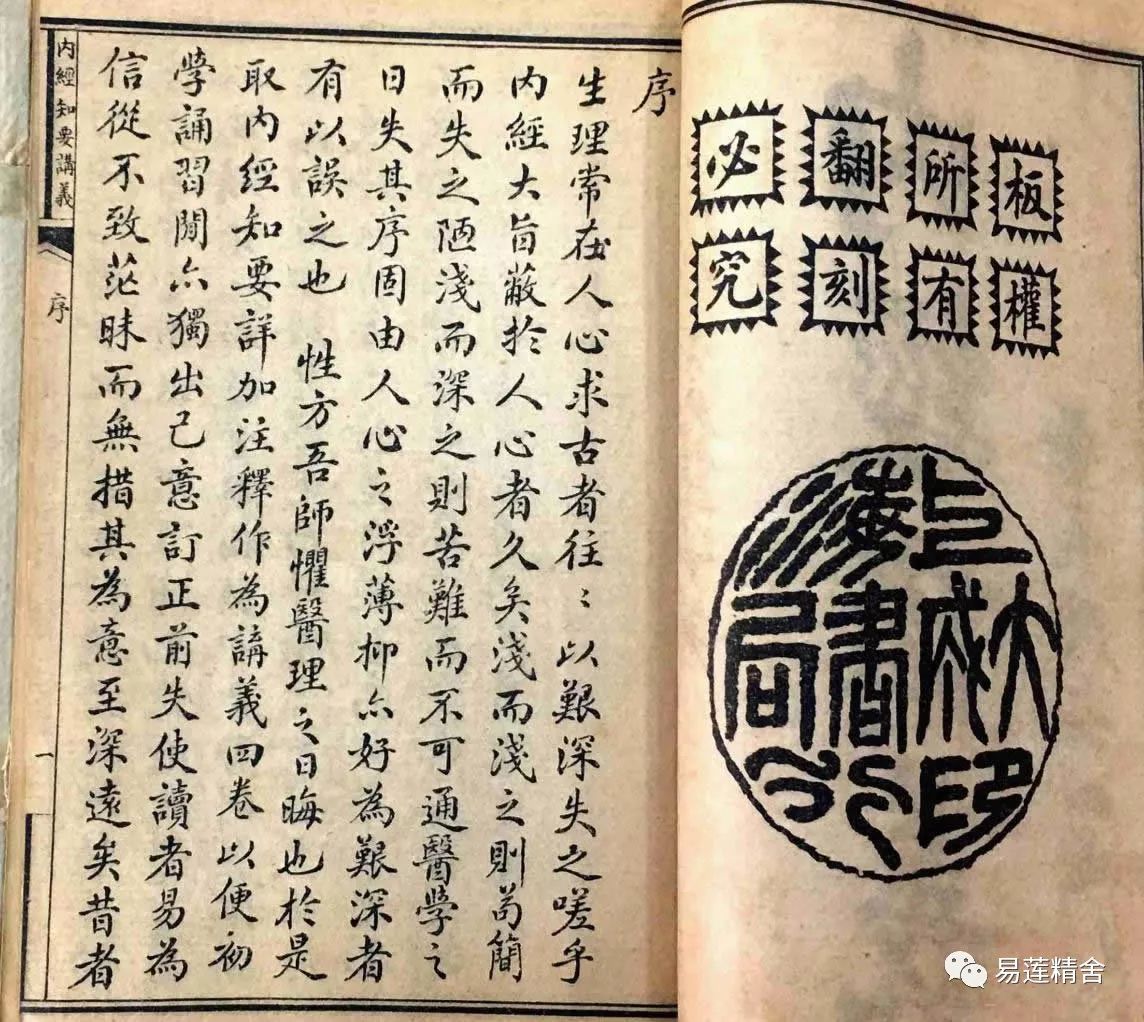 板權
所有
翻刻
必究
上海
大成書局
印行
序
生理常在人心求古者往〻以艱深失之嗟乎
内經大旨蔽於人心者久矣淺而淺之則苟簡
而失之陋淺而深之則苦難而不可通醫學之
日失其序固由人心之浮薄抑亦好為艱深者
有以誤之也　性方吾師懼醫理之日晦也於是
取内經知要詳加注釋作為講義四卷以便初
學誦習閒亦獨出己意訂正前失使讀者易為
信從不致茫昧而無措其為意至深遠矣昔者
内經知要講義
序
一
易莲精舍